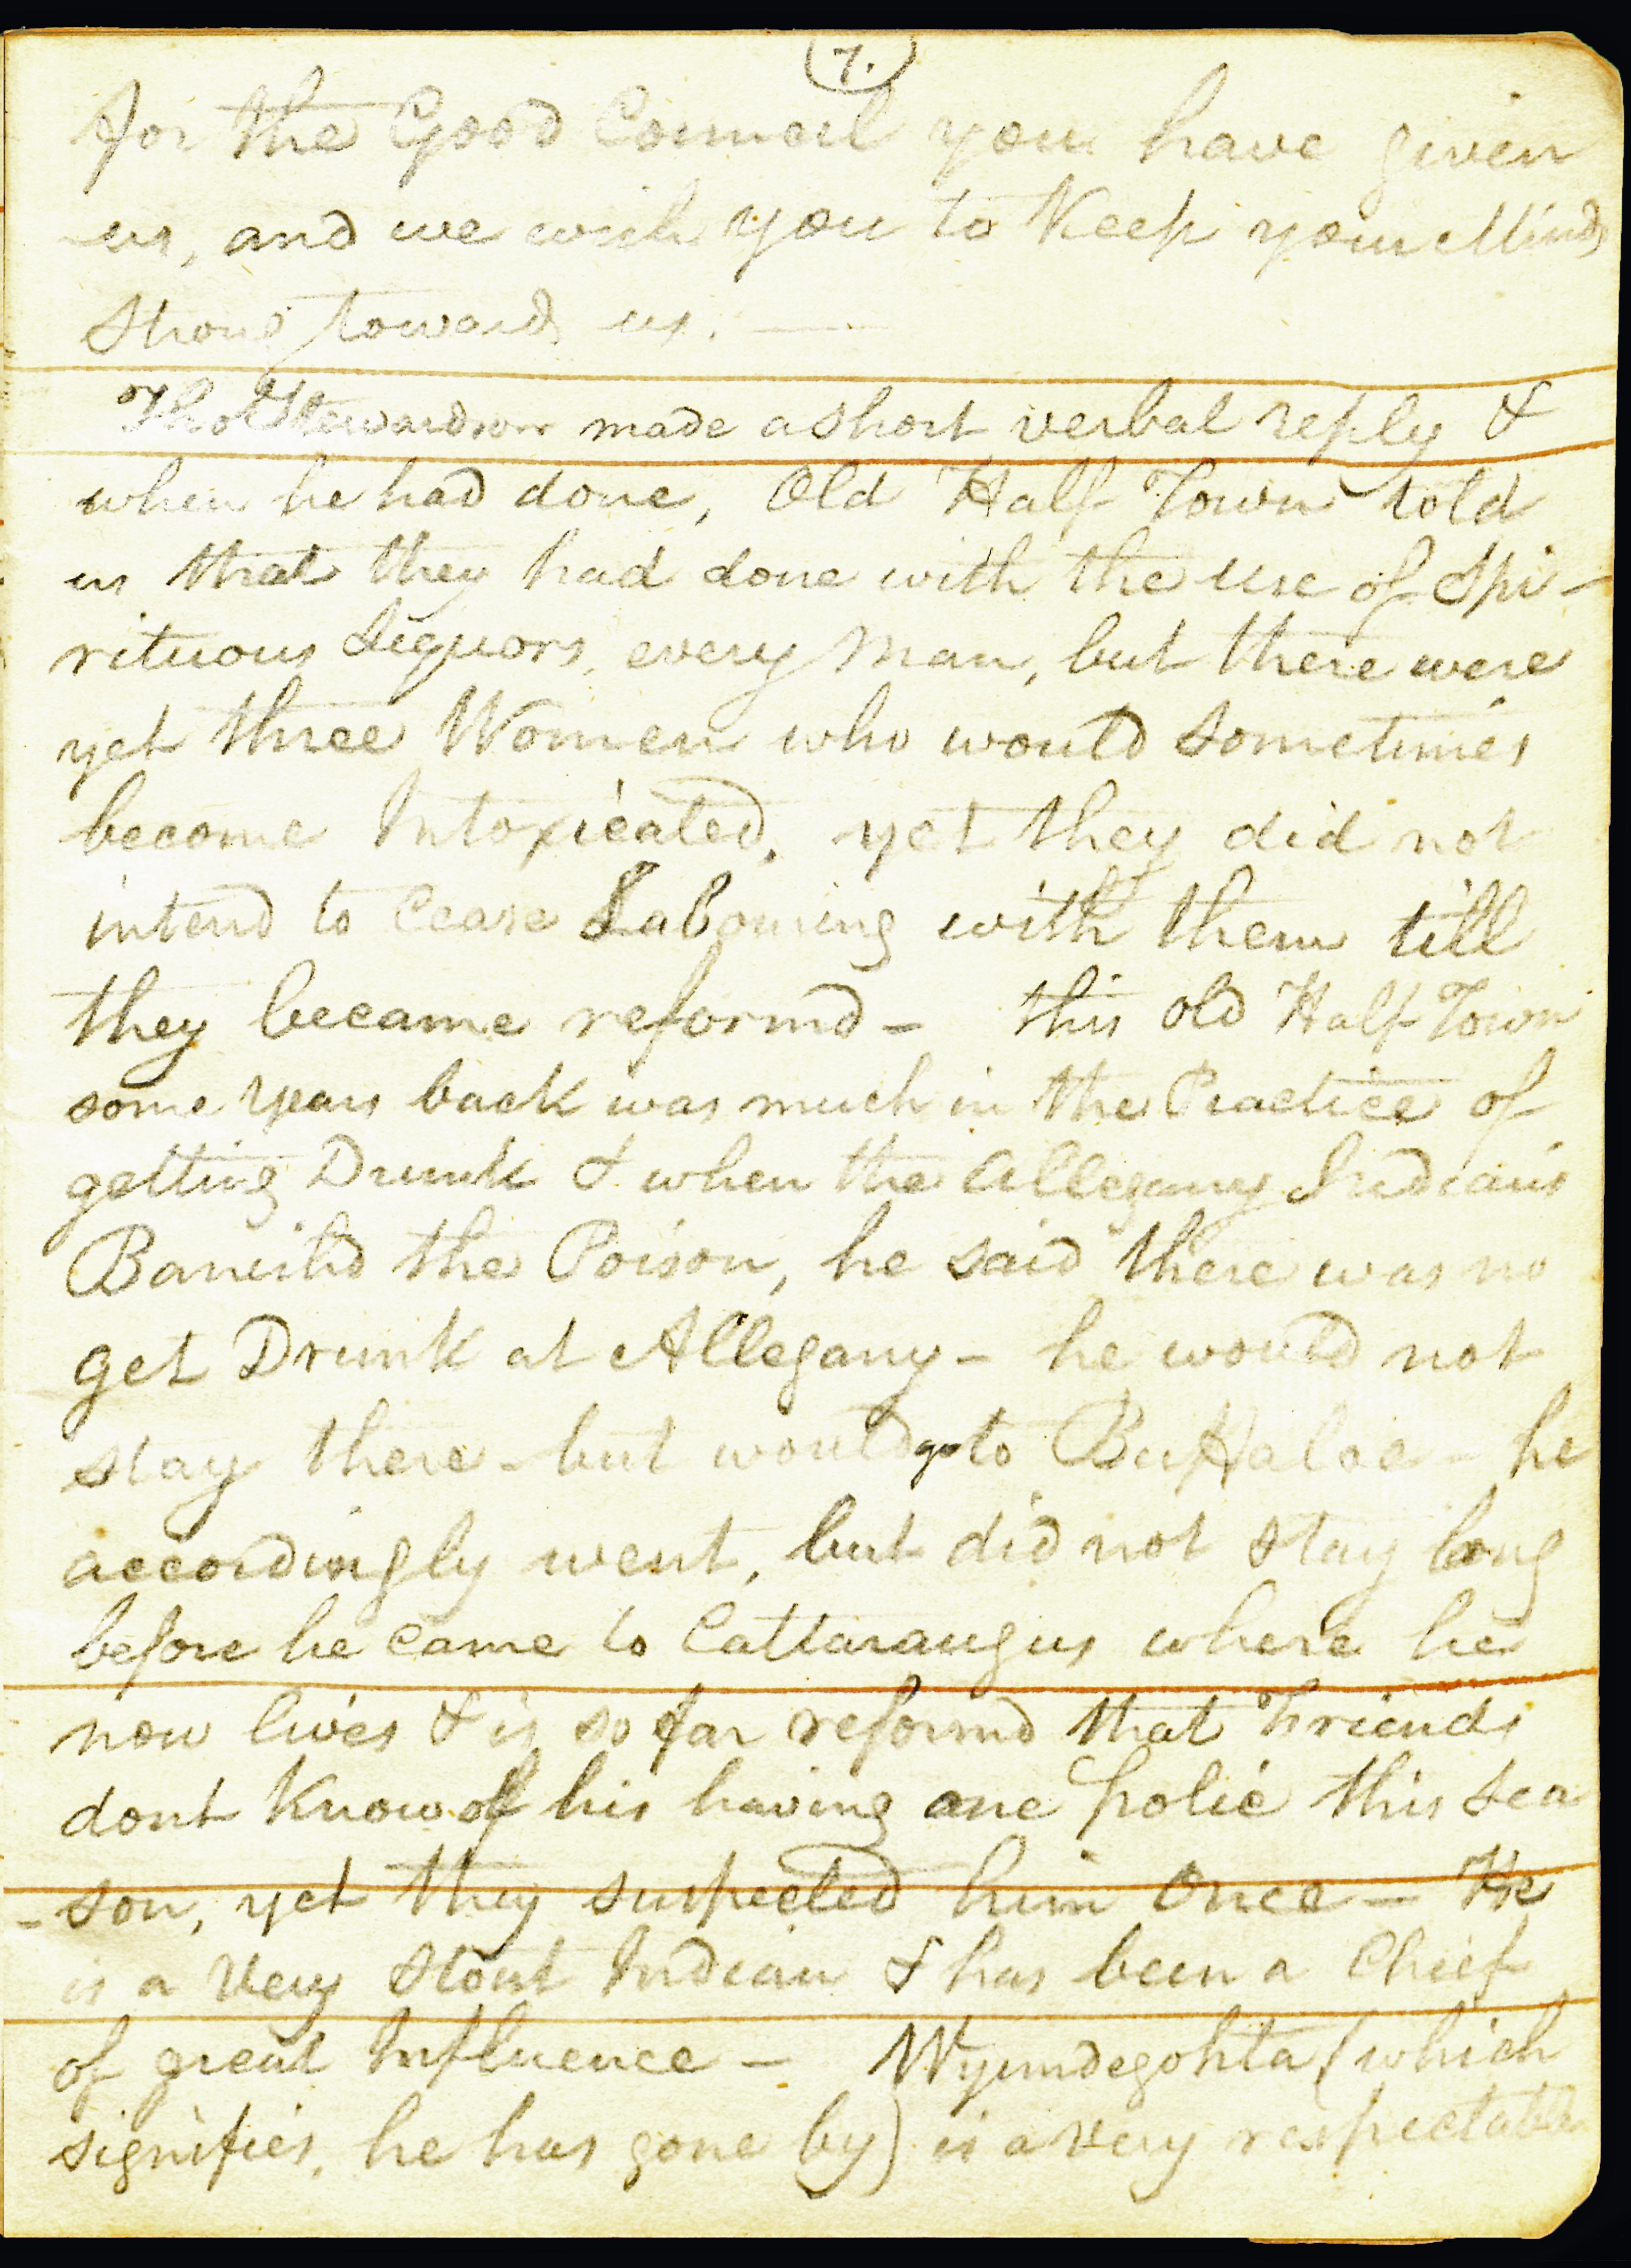 7.
for the Good Council you have given
us, and we wish you to Keep your Minds
Strong toward us.
Thos Stewardson made a short verbal reply &
when he had done, Old Half Town told
us that they had done with the use of Spi-
rituous Liquors, every Man, but there were
yet three Women who would sometimes
become Intoxicated, yet they did not
intend to Cease Labouring with them till
they became reformd - this old Half Town
some years back was much in the Practice of
getting Drunk & when the Allegany Indians
Banish'd the Poison, he said there was no
get Drunk at Allegany - he would not
stay there - but would go to Buffaloe - he
accordingly went, but did not stay long
before he came to Cattaraugus where he
now lives & is so far reformd that Friends
dont Know of his having one frolic this Sea
-son, yet they suspected him Once - He
is a Very Stout Indian & has been a Chief
of great Influence - Wyundegohta (which
signifies, he has gone by) is a very respectable